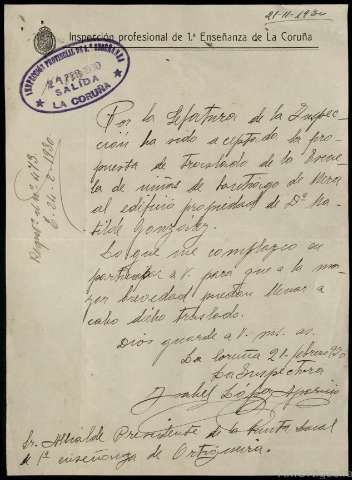 21-II-1930
Inspección profesional de 1.ª Enseñanza de La Coruña
INSPECCIÓN PROVINCIAL DE 1.ª ENSEÑANZA
24 FEB 1930
SALIDA
LA CORUÑA
Por la Jefatura de la Inspec-
ción ha sido aceptada la pro-
puesta de traslado de la Escue-
la de niñas de Santiago de Mera
al edificio propiedad de Dª Ma-
tilde González.
Lo que me complazco en
participar a V. para que a la ma-
yor brevedad puedan llevar a
cabo dicho traslado.
Dios guarde a V. ms. as.
La Coruña 21 febrero 930
La Inspectora
Isabel López Aparicio
Sr. Alcalde Presidente de la Junta Local
de 1ª enseñanza de Ortigueira.
Regtro. nº 473
24-2-1930